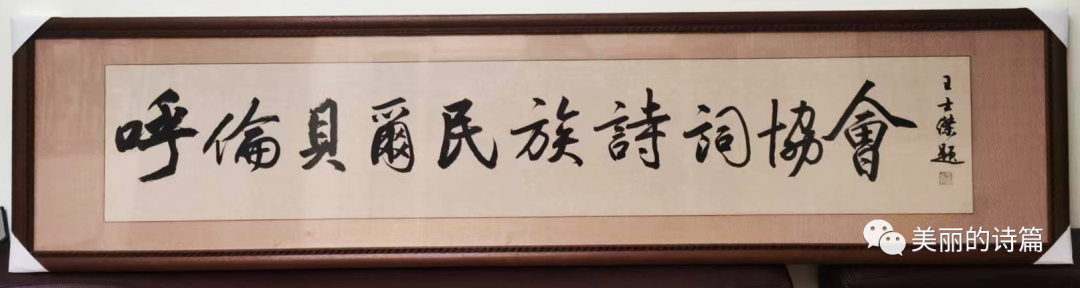 呼倫貝爾民族詩詞協會
王士傑題
美丽的诗篇